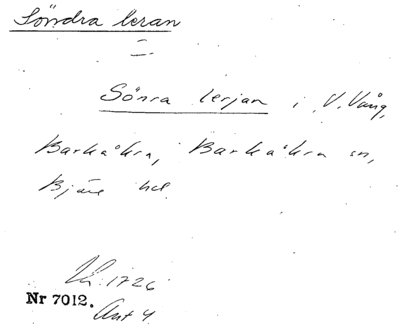 Söndra leran
Sönra lerjan i V. Vång,
Barkåkra, Barkåkra sn,
Bjäre hd.
LM 1726
Nr 7012.
Akt 4